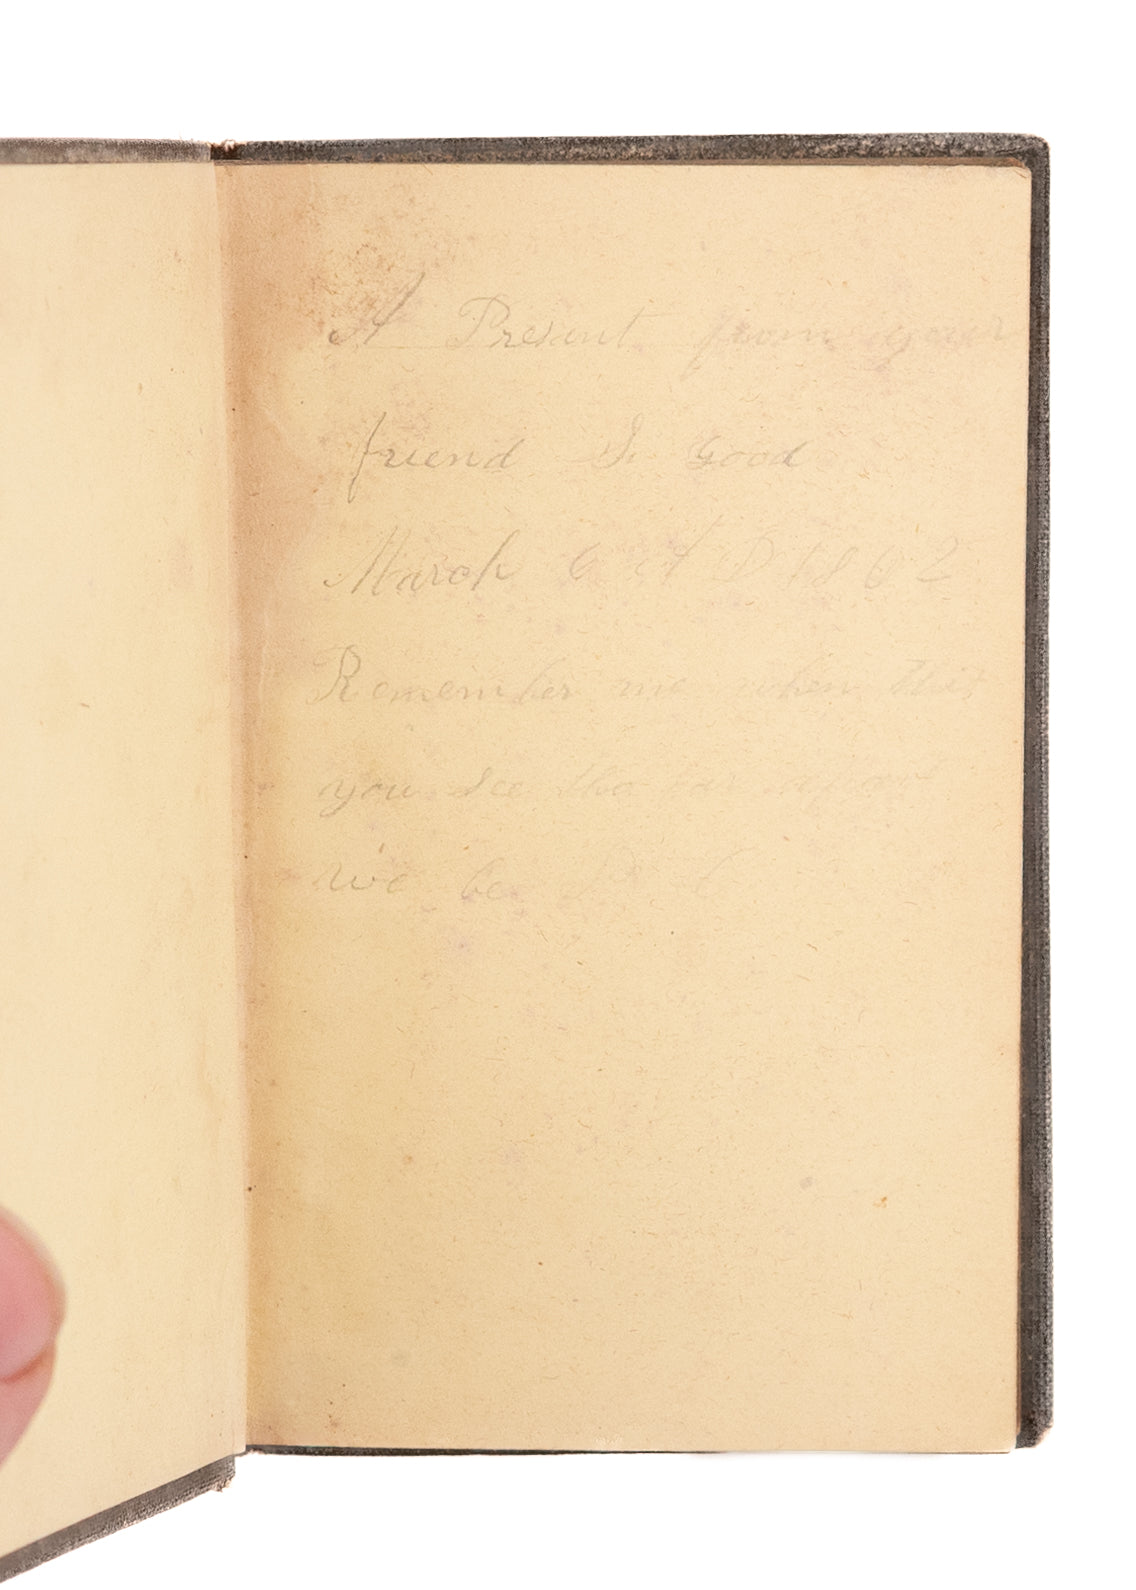 A Present from your
friend S. Good
March 6 A D 1862
Remember me when this
you see tho far apart
we be